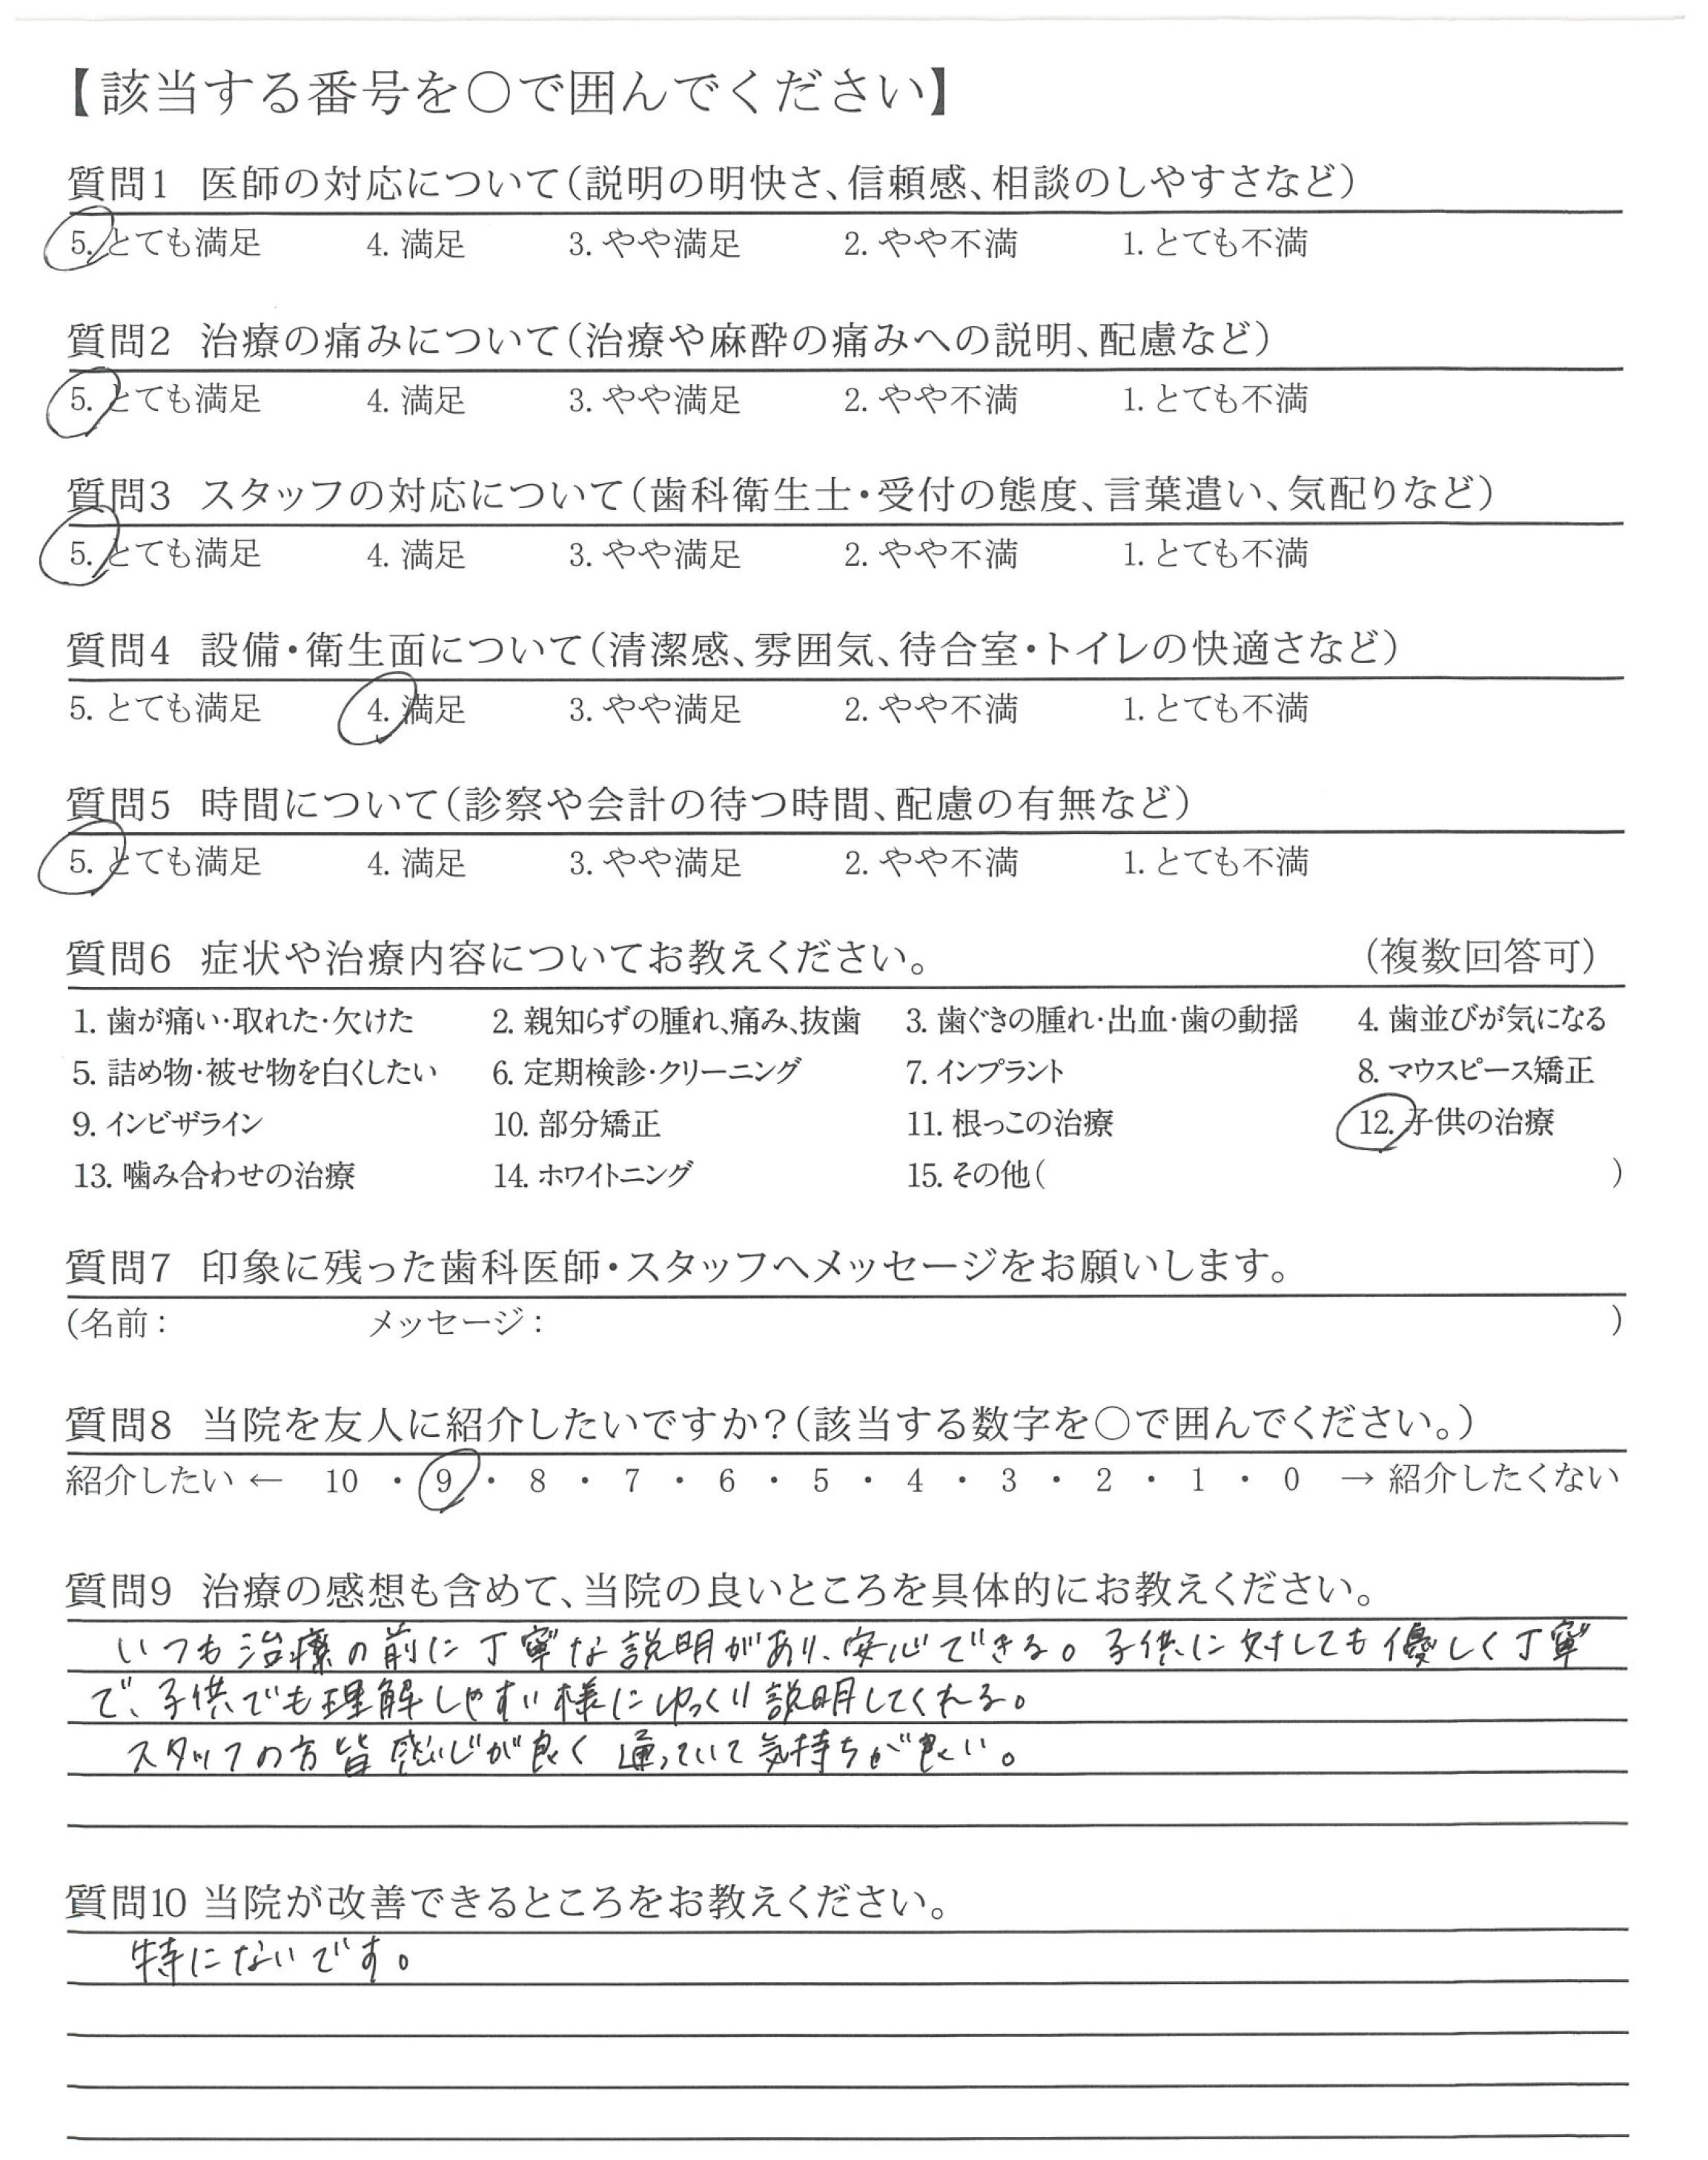 【該当する番号を○で囲んでください】
質問1 医師の対応について(説明の明快さ、信頼感、相談のしやすさなど)
5. とても満足 4. 満足 3. やや満足 2. やや不満 1. とても不満
質問2 治療の痛みについて(治療や麻酔の痛みへの説明、配慮など)
5. とても満足 4. 満足 3. やや満足 2. やや不満 1. とても不満
質問3 スタッフの対応について(歯科衛生士・受付の態度、言葉遣い、気配りなど)
5. とても満足 4. 満足 3. やや満足 2. やや不満 1. とても不満
質問4 設備・衛生面について(清潔感、雰囲気、待合室・トイレの快適さなど)
5. とても満足 4. 満足 3. やや満足 2. やや不満 1. とても不満
質問5 時間について(診察や会計の待つ時間、配慮の有無など)
5. とても満足 4. 満足 3. やや満足 2. やや不満 1. とても不満
質問6 症状や治療内容についてお教えください。 (複数回答可)
1. 歯が痛い・取れた・欠けた 2. 親知らずの腫れ、痛み、抜歯 3. 歯ぐきの腫れ・出血・歯の動揺 4. 歯並びが気になる
5. 詰め物・被せ物を白くしたい 6. 定期検診・クリーニング 7. インプラント 8. マウスピース矯正
9. インビザライン 10. 部分矯正 11. 根っこの治療 12. 子供の治療
13. 噛み合わせの治療 14. ホワイトニング 15. その他( )
質問7 印象に残った歯科医師・スタッフへメッセージをお願いします。
(名前: メッセージ: )
質問8 当院を友人に紹介したいですか?(該当する数字を○で囲んでください。)
紹介したい ← 10 ・ 9 ・ 8 ・ 7 ・ 6 ・ 5 ・ 4 ・ 3 ・ 2 ・ 1 ・ 0 → 紹介したくない
質問9 治療の感想も含めて、当院の良いところを具体的にお教えください。
いつも治療の前に丁寧な説明があり、安心できる。子供に対しても優しく丁寧
で、子供でも理解しやすい様にゆっくり説明してくれる。
スタッフの方皆感じが良く通っていて気持ちが良い。
質問10 当院が改善できるところをお教えください。
特にないです。